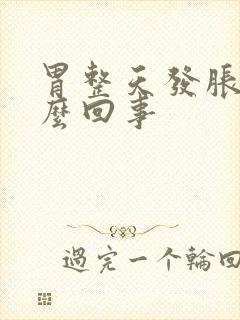 胃整天發脹
麼回事
過完一个輪回